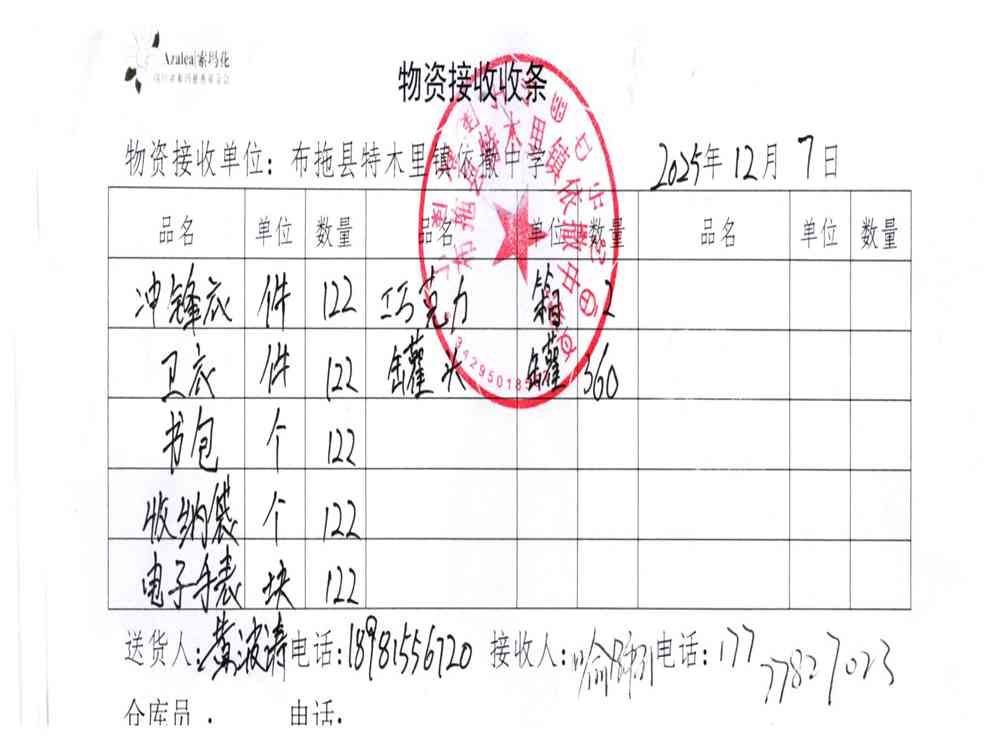 Azalea|索玛花
物资接收收条
物资接收单位：布拖县特木里镇依撒中学 2025年12月7日
品名 单位 数量 品名 单位 数量 品名 单位 数量
冲锋衣 件 122 巧克力 箱 2
卫衣 件 122 罐头 罐 360
书包 个 122
收纳袋 个 122
电子手表 块 122
送货人：黄波涛 电话：18981556720 接收人： 电话：177
77827023
仓库员： 电话：
布拖县特木里镇依撒中学